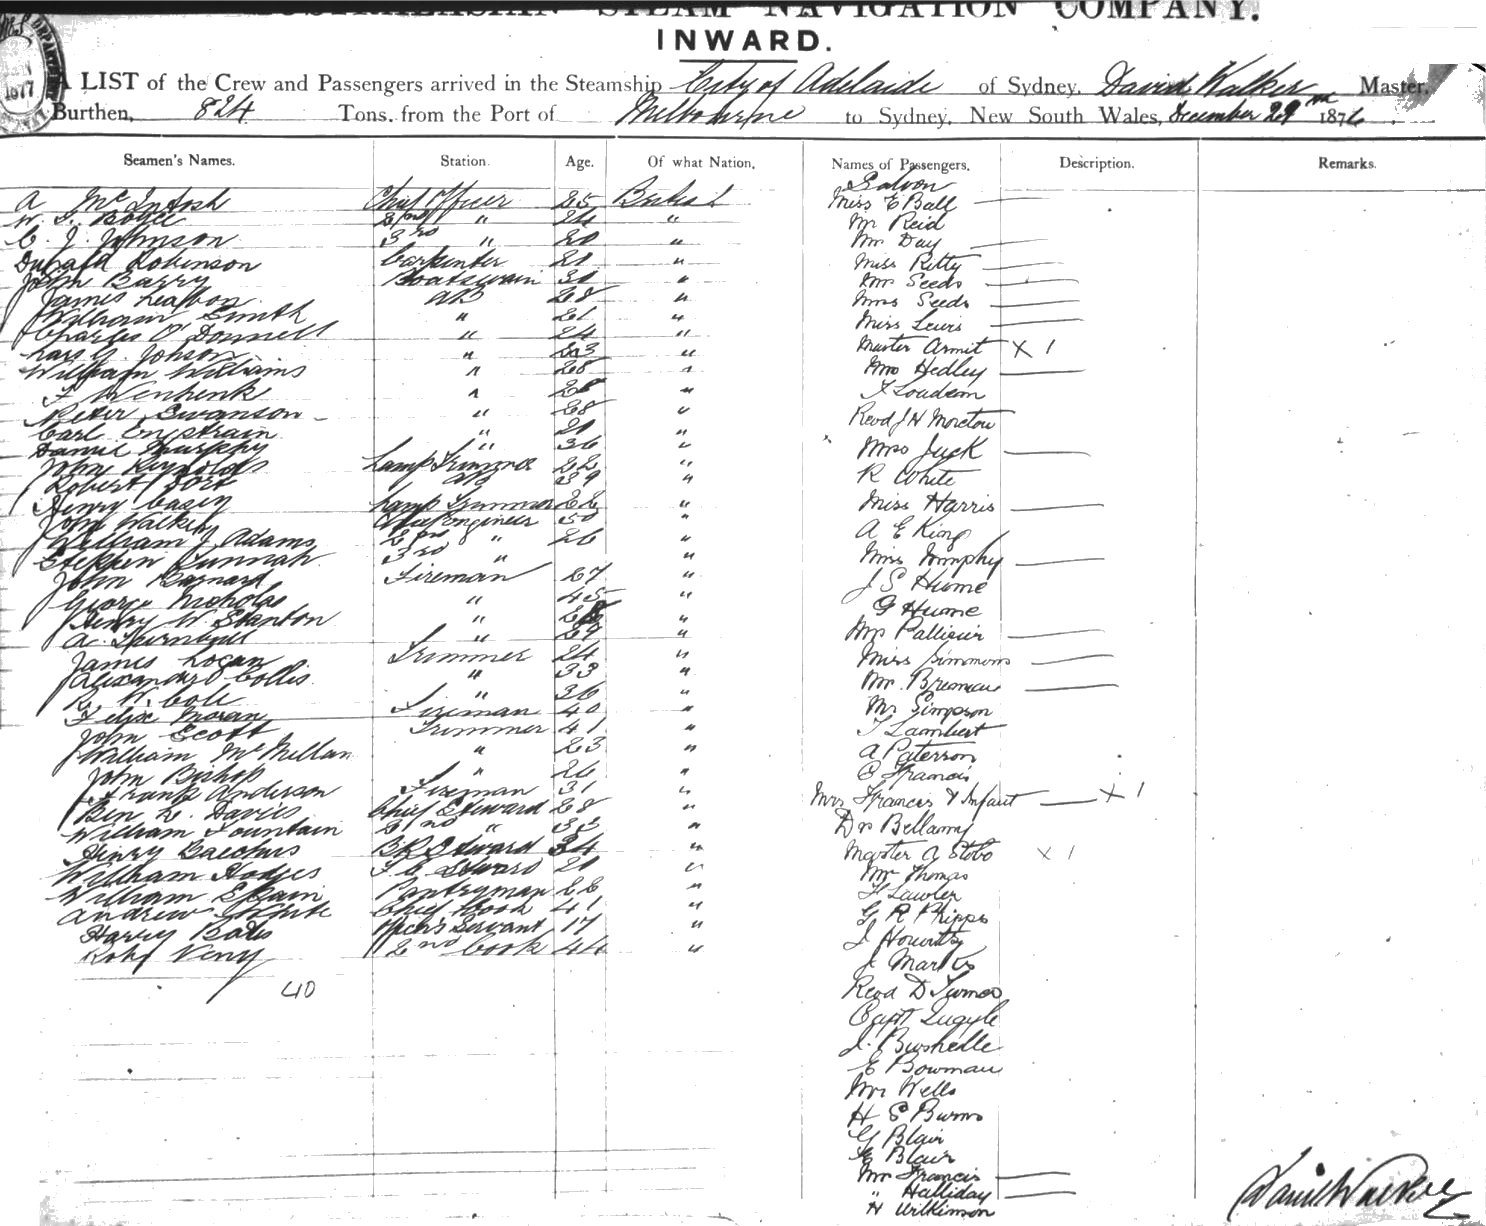 AUSTRALASIAN STEAM NAVIGATION COMPANY.
INWARD.
A LIST of the Crew and Passengers arrived in the Steamship City of Adelaide of Sydney, David Walker Master,
Burthen, 824 Tons, from the Port of Melbourne to Sydney, New South Wales, December 29 1876
Seamen's Names. Station. Age. Of what Nation.
A McIntosh Chief Officer 25 British
W. Boyce 2nd " 24 "
C. J. Johnson 3rd " 20 "
Donald Robinson Carpenter 21 "
John Barry Boatswain 30 "
James AB 28 "
William Smith " 21 "
Charles O'Donnell " 24 "
Lars G. Johson " 23 "
William Williams " 28 "
F Wenhenk " "
Peter Swanson " 28 "
Carl Engstrain " 21 "
Daniel Murphy " 36 "
John Reynolds Lamp Trimmer 22 "
Robert AB 39 "
Henry Casey Lamp Trimmer 22 "
John Chief Engineer 50 "
William J. Adams 2nd " 26 "
Stephen 3rd " "
John Barnard Fireman 27 "
George Nicholas " 45 "
Henry W. Stanton " "
A. Turnbull " 29 "
James Logan Trimmer 24 "
Alexander Collis " 33 "
R. W. Cole " 36 "
Felix Moran Fireman 40 "
John Scott Trimmer 41 "
William McMillan " 23 "
John Bishop " 26 "
Frank Anderson Fireman 31 "
Ben L. Davies Chief Steward 28 "
William Fountain 2nd " 33 "
Henry B R Steward 34 "
William Hodges F C Steward 21 "
William E Cain Pantryman 22 "
Andrew White Chief Cook 41 "
Harry Bates Servant 17 "
Robt Veny 2nd Cook 44 "
40
Names of Passengers. Description. Remarks.
Saloon
Miss E Ball
Mr Reid
Mr Day
Miss Pitty
Mr Seeds
Mrs Seeds
Miss Lewis
Master Armit X 1
Mrs Hedley
Loudem
Revd J H Moreton
Mrs Juck
R White
Miss Harris
A E King
Miss
J S Hume
G Hume
Mrs Pallisier
Miss Simmons
Mr
Mr Simpson
T Lambert
A Paterson
C Francis
Mrs Francis & Infant X 1
Dr Bellamy
Master A Stobo X 1
Mr Thomas
F Lawler
G R Phipps
J Howitz
J Marks
Revd D
Capt
J. Bushelle
E Bowman
Mr Wells
H S Burns
G Blair
E Blair
Mr Francis
" Halliday
H Wilkinson
David Walker